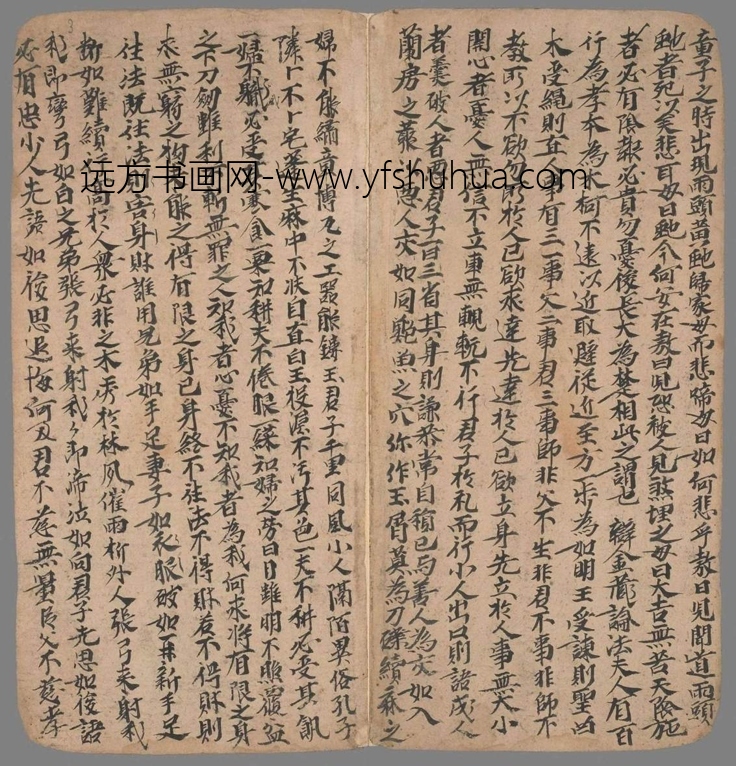 童子之時出現兩頭苗虵歸家母而悲啼母曰如何悲乎敖曰見聞道兩頭
虵者死以是悲耳母曰虵今何安在敖曰見恐被人見煞埋之母曰大吉無苦天隂施
者必有陰報必貴勿憂後長大為楚相此之謂也 辯金藏論法夫人有百
行為孝本為水桐不遠以近取避從近至方一步為如明王受諫則聖
木受繩則直人有三事父三事君三事師非父不生非君不事非師不
教所以不欲勿施於人己欲求達先達於人己欲立身先立於人事無大小
開心者憂人無信不立車無輗軏不行君子於礼而行小人出口則語成人
者囊破人者君子一日三省其身則謙恭常自稱己与善人為交如入
蘭房之藂沾惡人交如同鮑魚之穴弥作玉骨莫為刀礫續麻之
远方书画网-www.yfshuhua.com
婦不能繡章博瓦之工罷能鍊玉君子千里同風小人隔陌異俗孔子
隣卜不卜宅蓬生麻中不扶自直白玉投渥不污其色一夫不耕必受其飢
一婦不軄必受寒食一粟和耕夫不倦眼一綵知婦之勞曰日雖明不照覆盆
之下刀劒雖利不斬無罪之人知我者心憂不知我者為我何求將有限之身
求無窮之能之得有限之身己身終不往法不得財若不得財則
往法既往法身害身財誰用兄弟如手足妻子如衣服破如再新手足
斷如難續高於人衆必非之木秀於林風催雨折外人張弓来射我
我即彎弓如白之兄弟張弓来射我々即啼泣如向君子先思如後語
必有忠少人先語如後思退悔何及君不慈無量臣父不慈孝